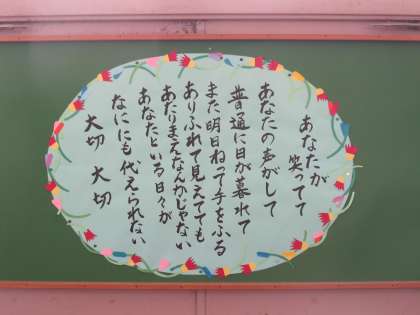 あなたが
笑ってて
あなたの声がして
普通に日が暮れて
また明日ねって手をふる
ありふれて見えてても
あたりまえなんかじゃない
あなたといる日々が
なににも代えられない
大切 大切